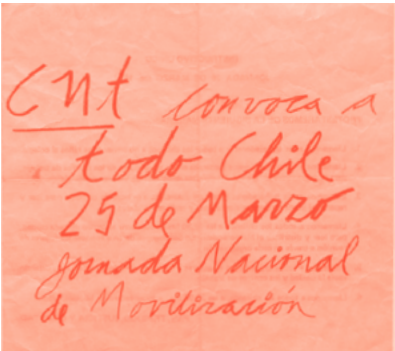 CNt convoca a
todo Chile
25 de Marzo
Jornada Nacional
de Movilización